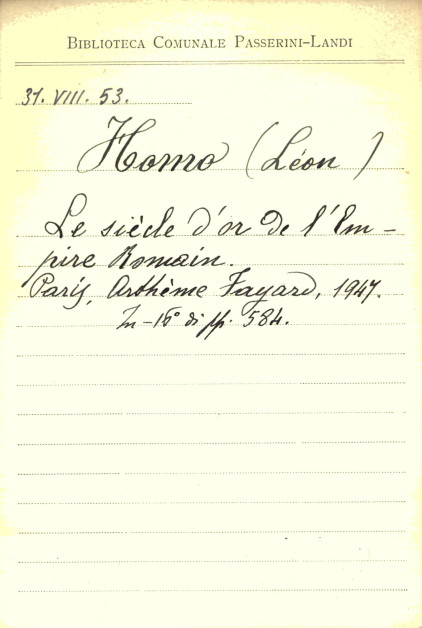 BIBLIOTECA COMUNALE PASSERINI-LANDI
31. VIII. 53.
Homo (Léon)
Le siècle d'or de l'Em-
pire Romain.
Paris, Arthème Fayard, 1947.
In-16° di pp. 584.